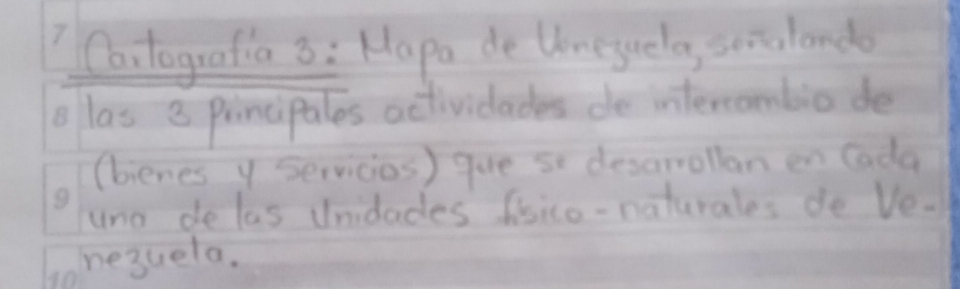 7 Cartografía 3: Mapa de Venezuela, señalando
8 las 3 principales actividades de intercambio de
(bienes y servicios) que se desarrollan en cada
9 una de las Unidades físico-naturales de Ve-
nezuela.
10